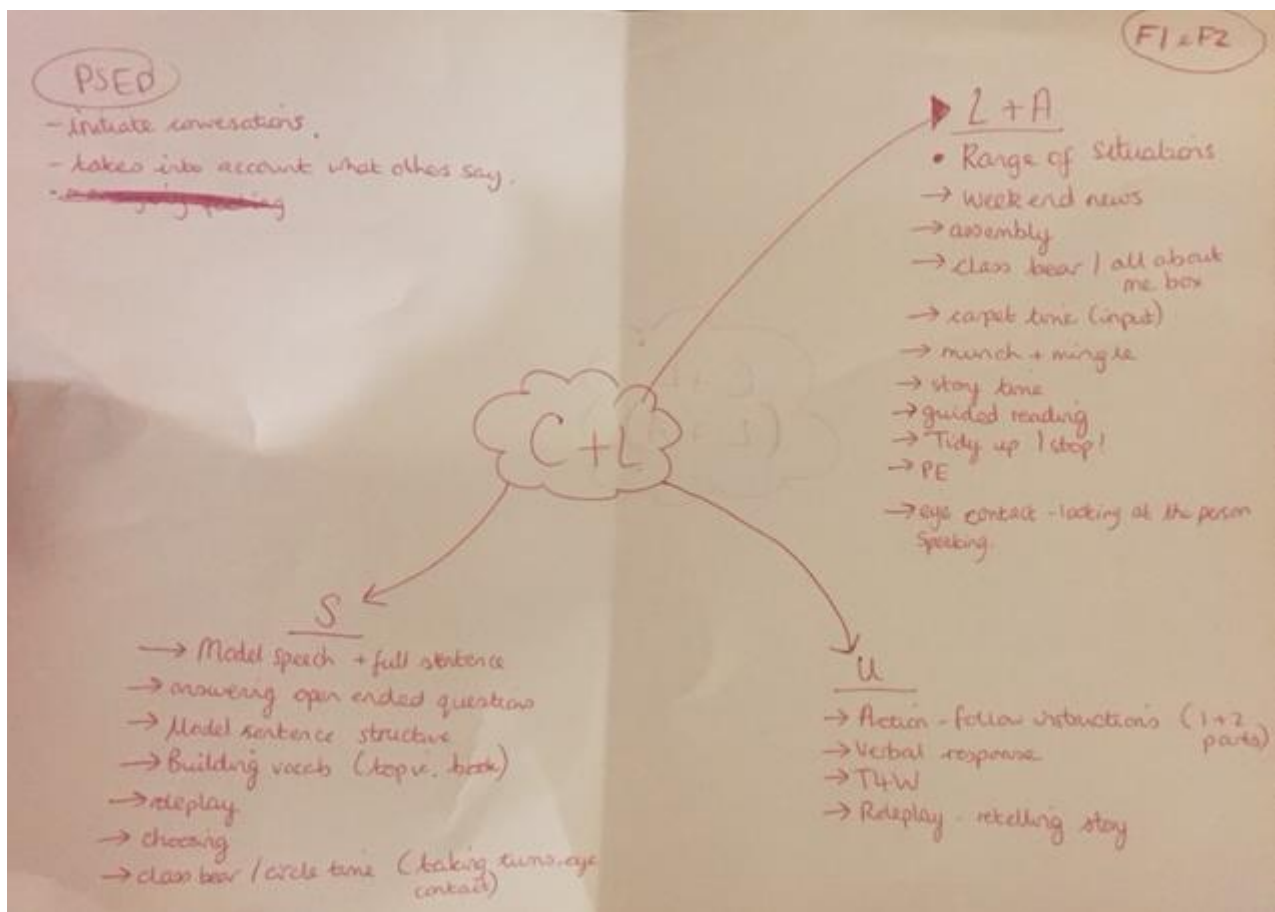 PSED
- initiate conversations.
- takes into account what others say.
F1 & F2
L + A
• Range of situations
→ weekend news
→ assembly
→ class bear / all about
me box
→ carpet time (input)
→ munch + mingle
→ story time
→ guided reading
→ Tidy up / stop!
→ PE
→ eye contact - looking at the person
speaking.
C+L
S
→ Model speech + full sentence
→ answering open ended questions
→ Model sentence structure
→ Building vocab (topic, book)
→ roleplay
→ choosing
→ class bear / circle time (taking turns, eye
contact)
U
→ Action - follow instructions (1+2
parts)
→ Verbal response
→ T4W
→ Roleplay - retelling story